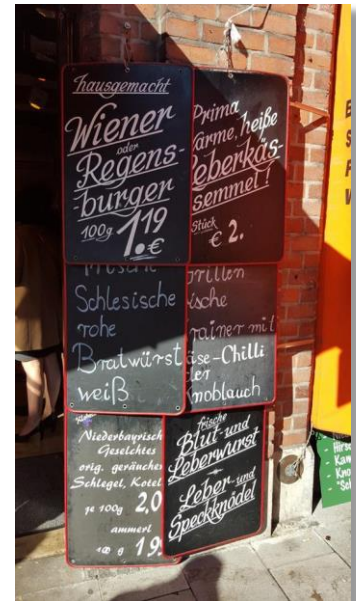 hausgemacht
Wiener
oder
Regens-
burger
100g 1.19
€
Prima
warme, heiße
Leberkäs-
semmel!
Stück
€ 2.
Frische
Schlesische
rohe
Bratwürst
weiß
Grillen
ische
rainer mit
äse-Chilli
der
noblauch
Niederbayrisch
Geselchtes
orig. geräucher
Schlegel, Kotel
je 100g 2,0
ammerl
100 g 1,9
frische
Blut- und
Leberwurst
Leber- und
Speckknödel
Hirs
Kam
Kno